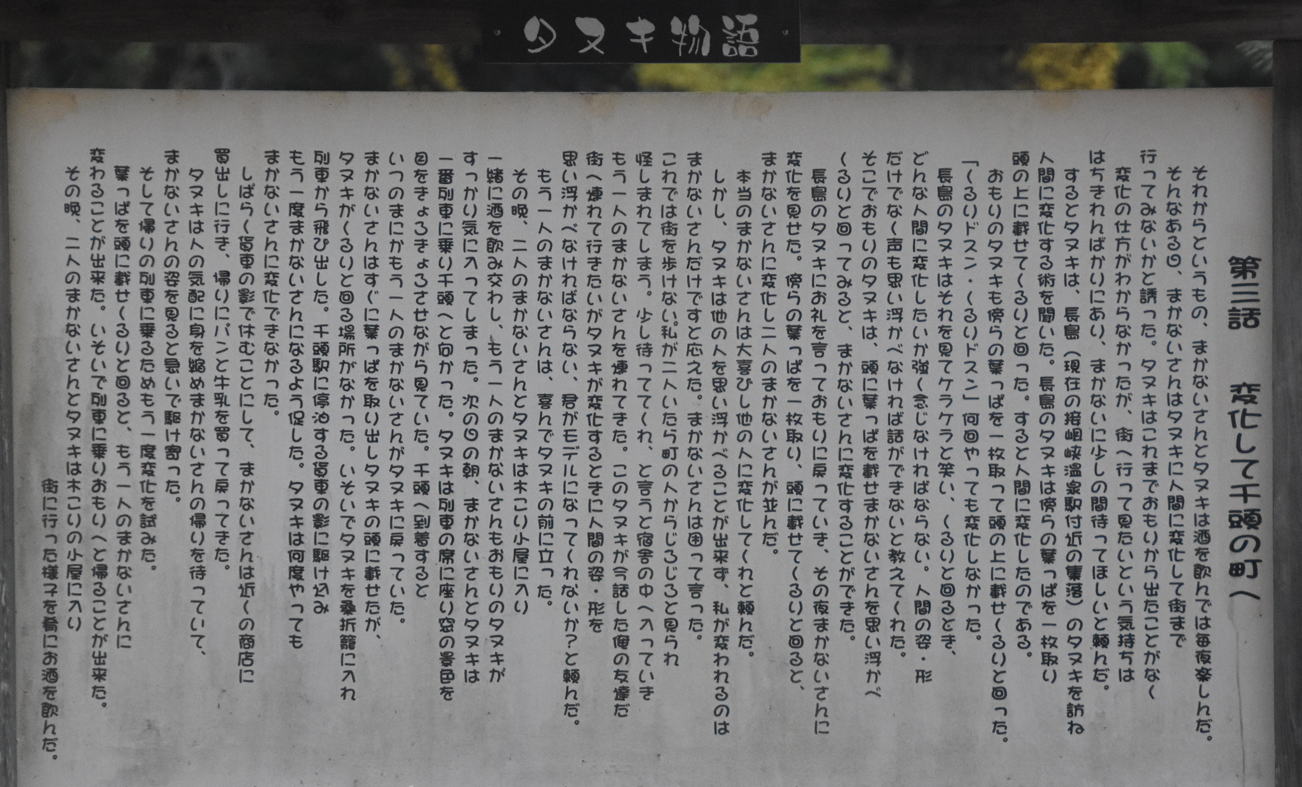 タヌキ物語
第三話　変化して千頭の町へ
それからというもの、まかないさんとタヌキは酒を飲んでは毎夜楽しんだ。
そんなある日、まかないさんはタヌキに人間に変化して街まで
行ってみないかと誘った。タヌキはこれまでおもりから出たことがなく
変化の仕方がわからなかったが、街へ行って見たいという気持ちは
はちきれんばかりにあり、まかないに少しの間待ってほしいと頼んだ。
するとタヌキは、長島（現在の接岨峡温泉駅付近の集落）のタヌキを訪ね
人間に変化する術を聞いた。長島のタヌキは傍らの葉っぱを一枚取り
頭の上に載せてくるりと回った。すると人間に変化したのである。
おもりのタヌキも傍らの葉っぱを一枚取って頭の上に載せくるりと回った。
「くるりドスン・くるりドスン」何回やっても変化しなかった。
長島のタヌキはそれを見てケラケラと笑い、くるりと回るとき、
どんな人間に変化したいか強く念じなければならない。人間の姿・形
だけでなく声も思い浮かべなければ話ができないと教えてくれた。
そこでおもりのタヌキは、頭に葉っぱを載せまかないさんを思い浮かべ
くるりと回ってみると、まかないさんに変化することができた。
長島のタヌキにお礼を言っておもりに戻っていき、その夜まかないさんに
変化を見せた。傍らの葉っぱを一枚取り、頭に載せてくるりと回ると、
まかないさんに変化し二人のまかないさんが並んだ。
本当のまかないさんは大喜びし他の人に変化してくれと頼んだ。
しかし、タヌキは他の人を思い浮かべることが出来ず、私が変われるのは
まかないさんだけですと応えた。まかないさんは困って言った。
これでは街を歩けない。私が二人いたら町の人からじろじろと見られ
怪しまれてしまう。少し待っててくれ、と言うと宿舎の中へ入っていき
もう一人のまかないさんを連れてきた。このタヌキが今話した俺の友達だ
街へ連れて行きたいがタヌキが変化するときに人間の姿・形を
思い浮かべなければならない、君がモデルになってくれないか？と頼んだ。
もう一人のまかないさんは、喜んでタヌキの前に立った。
その晩、二人のまかないさんとタヌキは木こり小屋に入り
一緒に酒を飲み交わし、もう一人のまかないさんもおもりのタヌキが
すっかり気に入ってしまった。次の日の朝、まかないさんとタヌキは
一番列車に乗り千頭へと向かった。タヌキは列車の席に座り窓の景色を
目をきょろきょろさせながら見ていた。千頭へ到着すると
いつのまにかもう一人のまかないさんがタヌキに戻っていた。
まかないさんはすぐに葉っぱを取り出しタヌキの頭に載せたが、
タヌキがくるりと回る場所がなかった。いそいでタヌキを桑折籠に入れ
列車から飛び出した。千頭駅に停泊する貨車の影に駆け込み
もう一度まかないさんになるよう促した。タヌキは何度やっても
まかないさんに変化できなかった。
しばらく貨車の影で休むことにして、まかないさんは近くの商店に
買出しに行き、帰りにパンと牛乳を買って戻ってきた。
タヌキは人の気配に身を縮めまかないさんの帰りを待っていて、
まかないさんの姿を見ると急いで駆け寄った。
そして帰りの列車に乗るためもう一度変化を試みた。
葉っぱを頭に載せくるりと回ると、もう一人のまかないさんに
変わることが出来た。いそいで列車に乗りおもりへと帰ることが出来た。
その晩、二人のまかないさんとタヌキは木こりの小屋に入り
街に行った様子を肴にお酒を飲んだ。